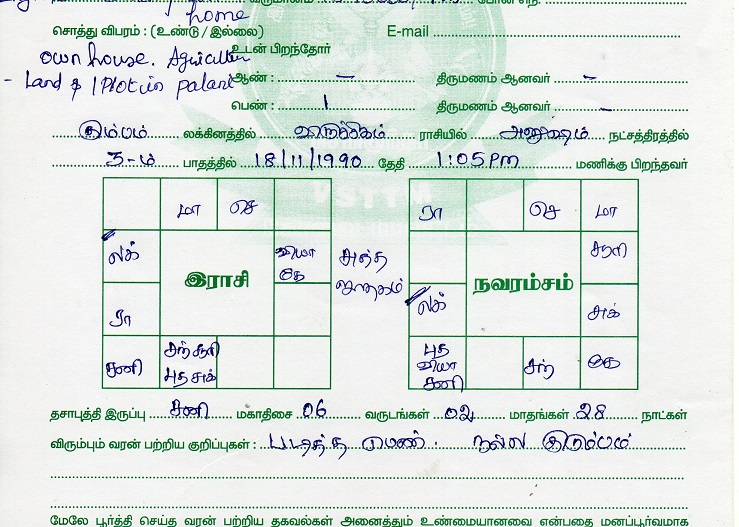 home
சொத்து விபரம் : (உண்டு / இல்லை) E-mail
own house. Agriculture உடன் பிறந்தோர்
- Land & 1 Plot in palani ஆண் : - திருமணம் ஆனவர் -
பெண் : 1 திருமணம் ஆனவர் -
கும்பம் லக்கினத்தில் விருச்சிகம் ராசியில் அனுஷம் நட்சத்திரத்தில்
3-ம் பாதத்தில் 18/11/1990 தேதி 1:05 Pm மணிக்கு பிறந்தவர்
மா செ
லக் வியா கே
இராசி
ரா
சனி சந் சூரி புத சுக்
சுத்த ஜாதகம்
ரா செ மா
சூரி
நவரம்சம்
லக் சுக்
புத வியா சனி சந் கே
தசாபுத்தி இருப்பு சனி மகாதிசை 06 வருடங்கள் 02 மாதங்கள் 28 நாட்கள்
விரும்பும் வரன் பற்றிய குறிப்புகள் : படித்த பெண். நல்ல குடும்பம்
மேலே பூர்த்தி செய்த வரன் பற்றிய தகவல்கள் அனைத்தும் உண்மையானவை என்பதை மனப்பூர்வமாக